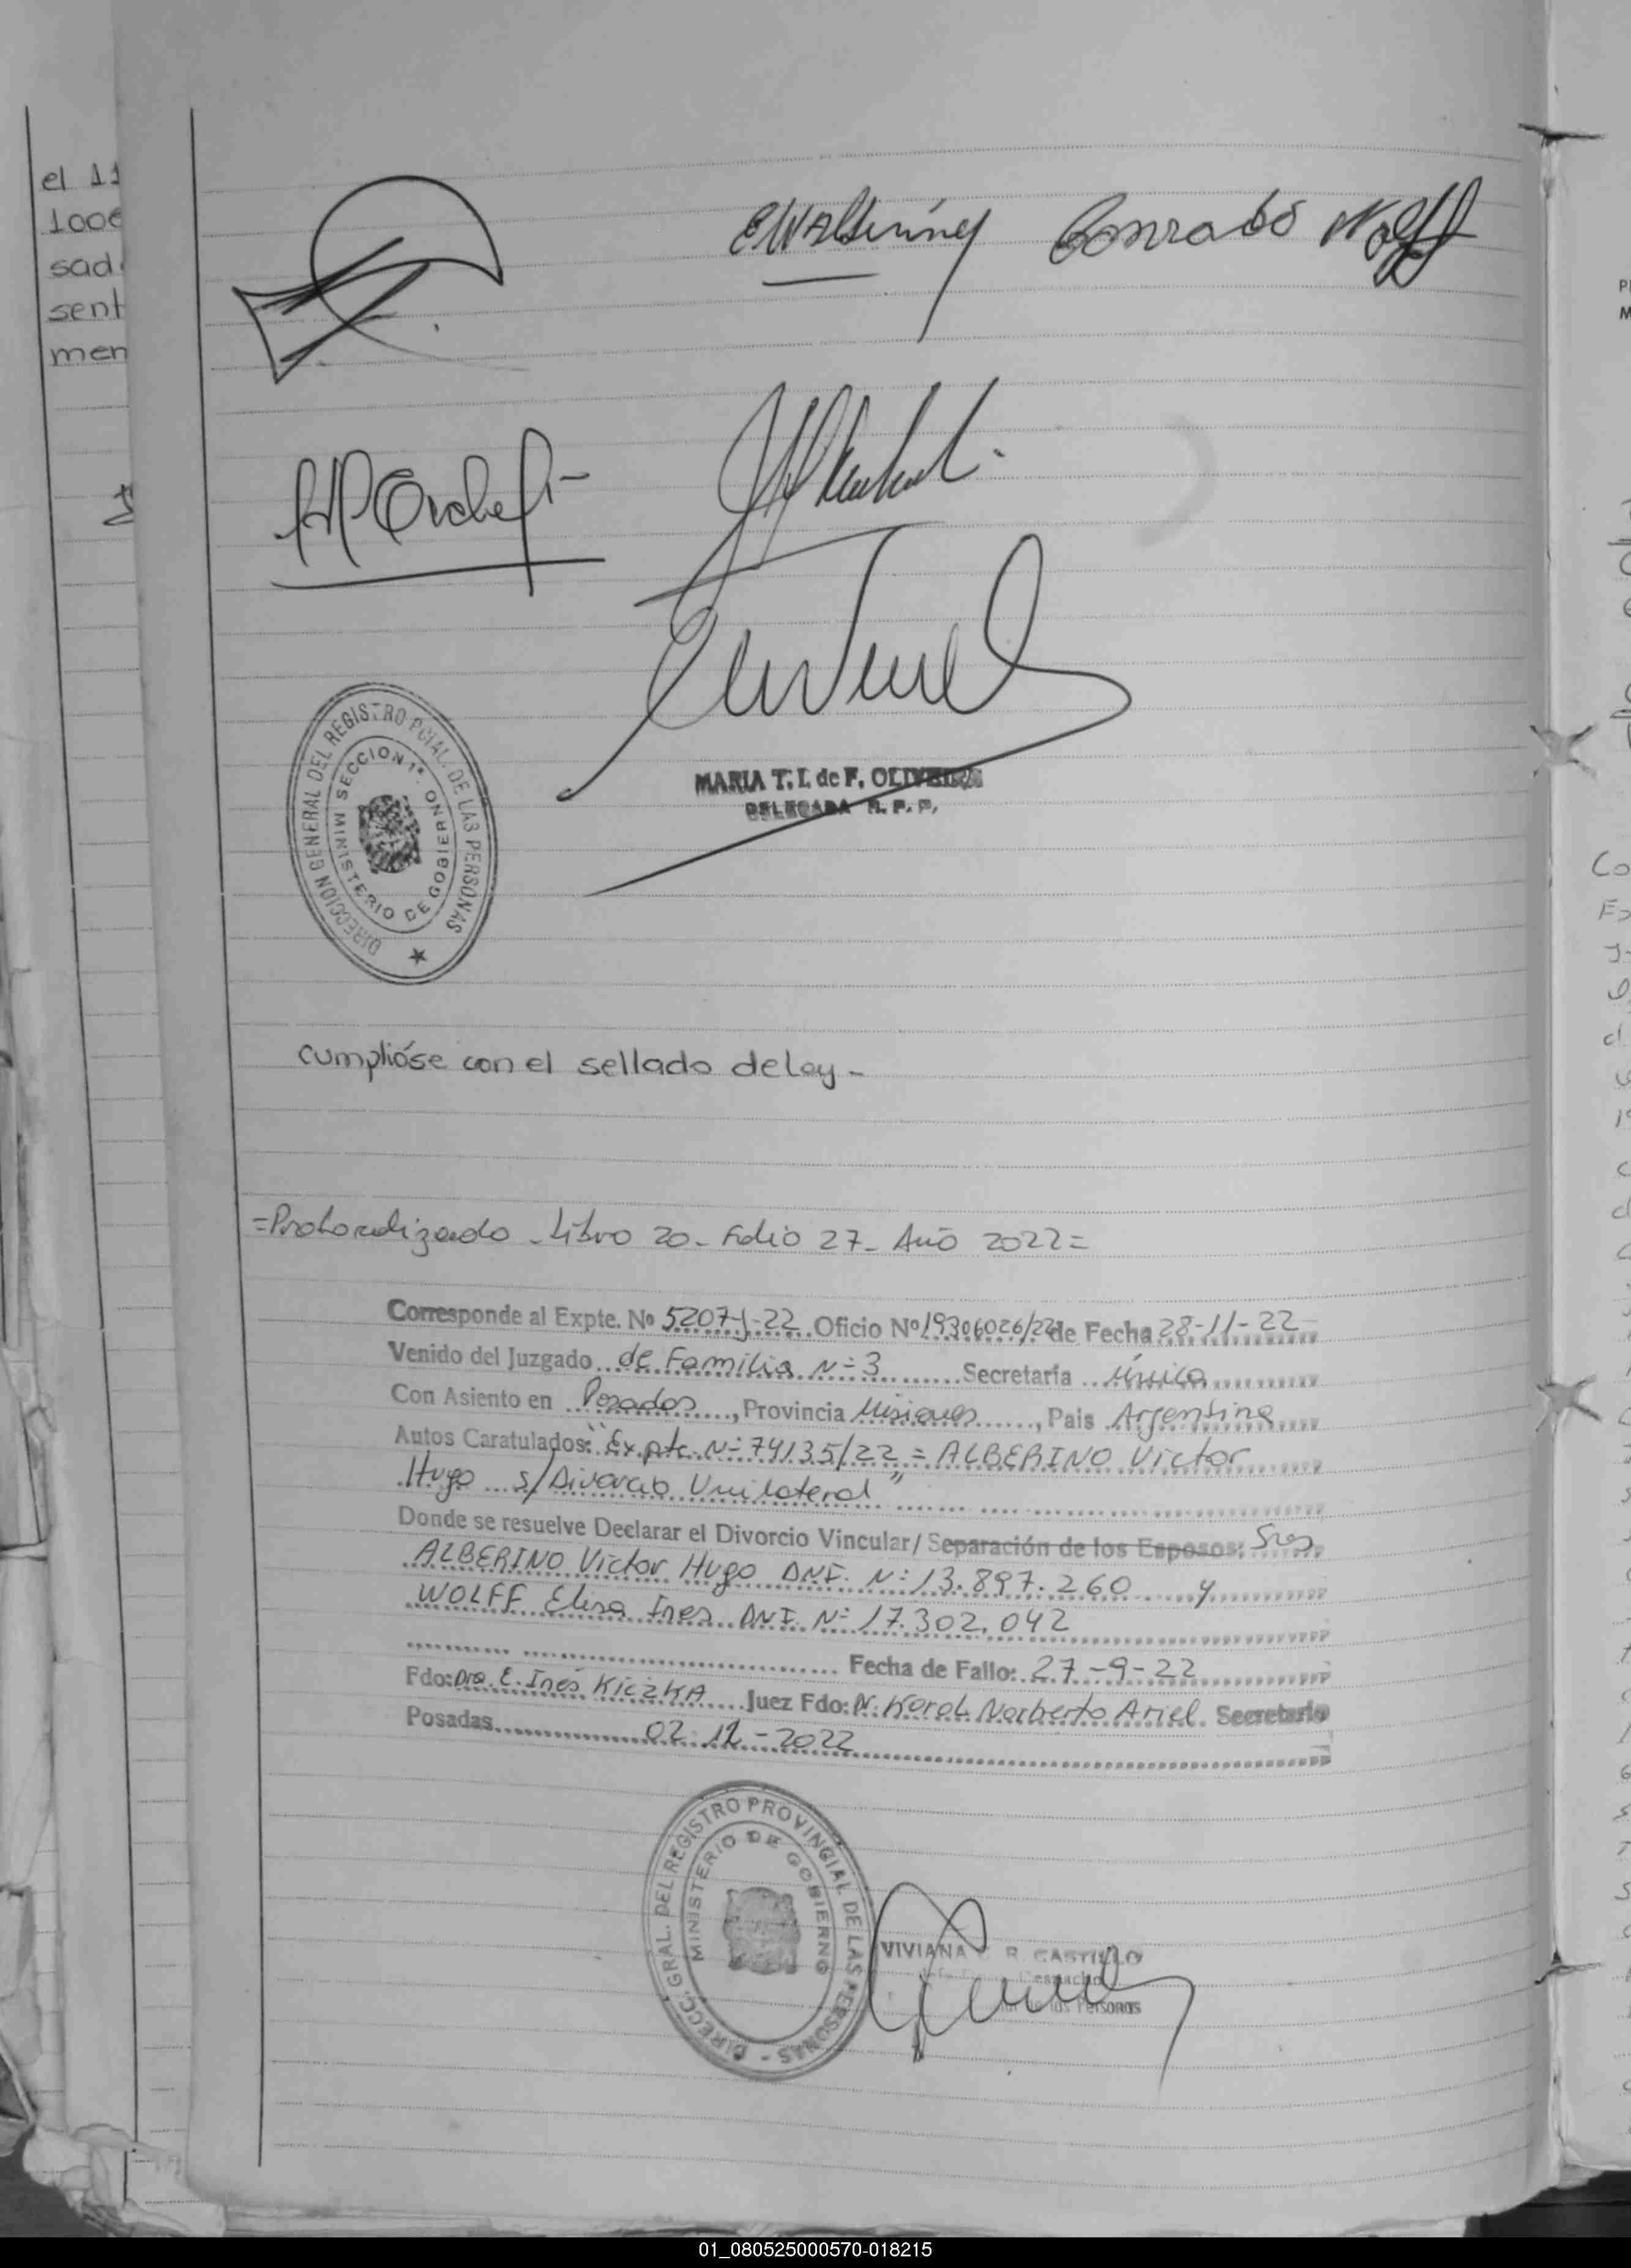 el 11
100
sad
sent
men
Conrado Wolff
MARIA T. I. de F. OLIVEIRA
DELEGADA R. P. P.
DIRECCION GENERAL DEL REGISTRO PCIAL. DE LAS PERSONAS
SECCION 1ª.
MINISTERIO DE GOBIERNO
cumplióse con el sellado de ley -
=Protocolizado - Libro 20 - Folio 27 - Año 2022=
Corresponde al Expte. Nº 5207-J-22 Oficio Nº 19306026/22 de Fecha 28-11-22
Venido del Juzgado de Familia Nº 3 Secretaría Única
Con Asiento en Posadas, Provincia Misiones, Pais Argentina
Autos Caratulados: "Expte. Nº 74135/22 = ALBERINO Victor
Hugo s/Divorcio Unilateral"
Donde se resuelve Declarar el Divorcio Vincular/ Separación de los Esposos: Sres.
ALBERINO Victor Hugo DNI. Nº 13.897.260 y
WOLFF Elisa Ines DNI Nº 17.302.042
Fecha de Fallo: 27-9-22
Fdo: Dra. E. Inés KICZKA Juez Fdo: Dr. Korol Norberto Ariel. Secretario
Posadas 02-12-2022
DIRECC. GRAL. DEL REGISTRO PROVINCIAL DE LAS PERSONAS -
MINISTERIO DE GOBIERNO
VIVIANA R. CASTILLO
Despacho
las Personas
01_080525000570-018215